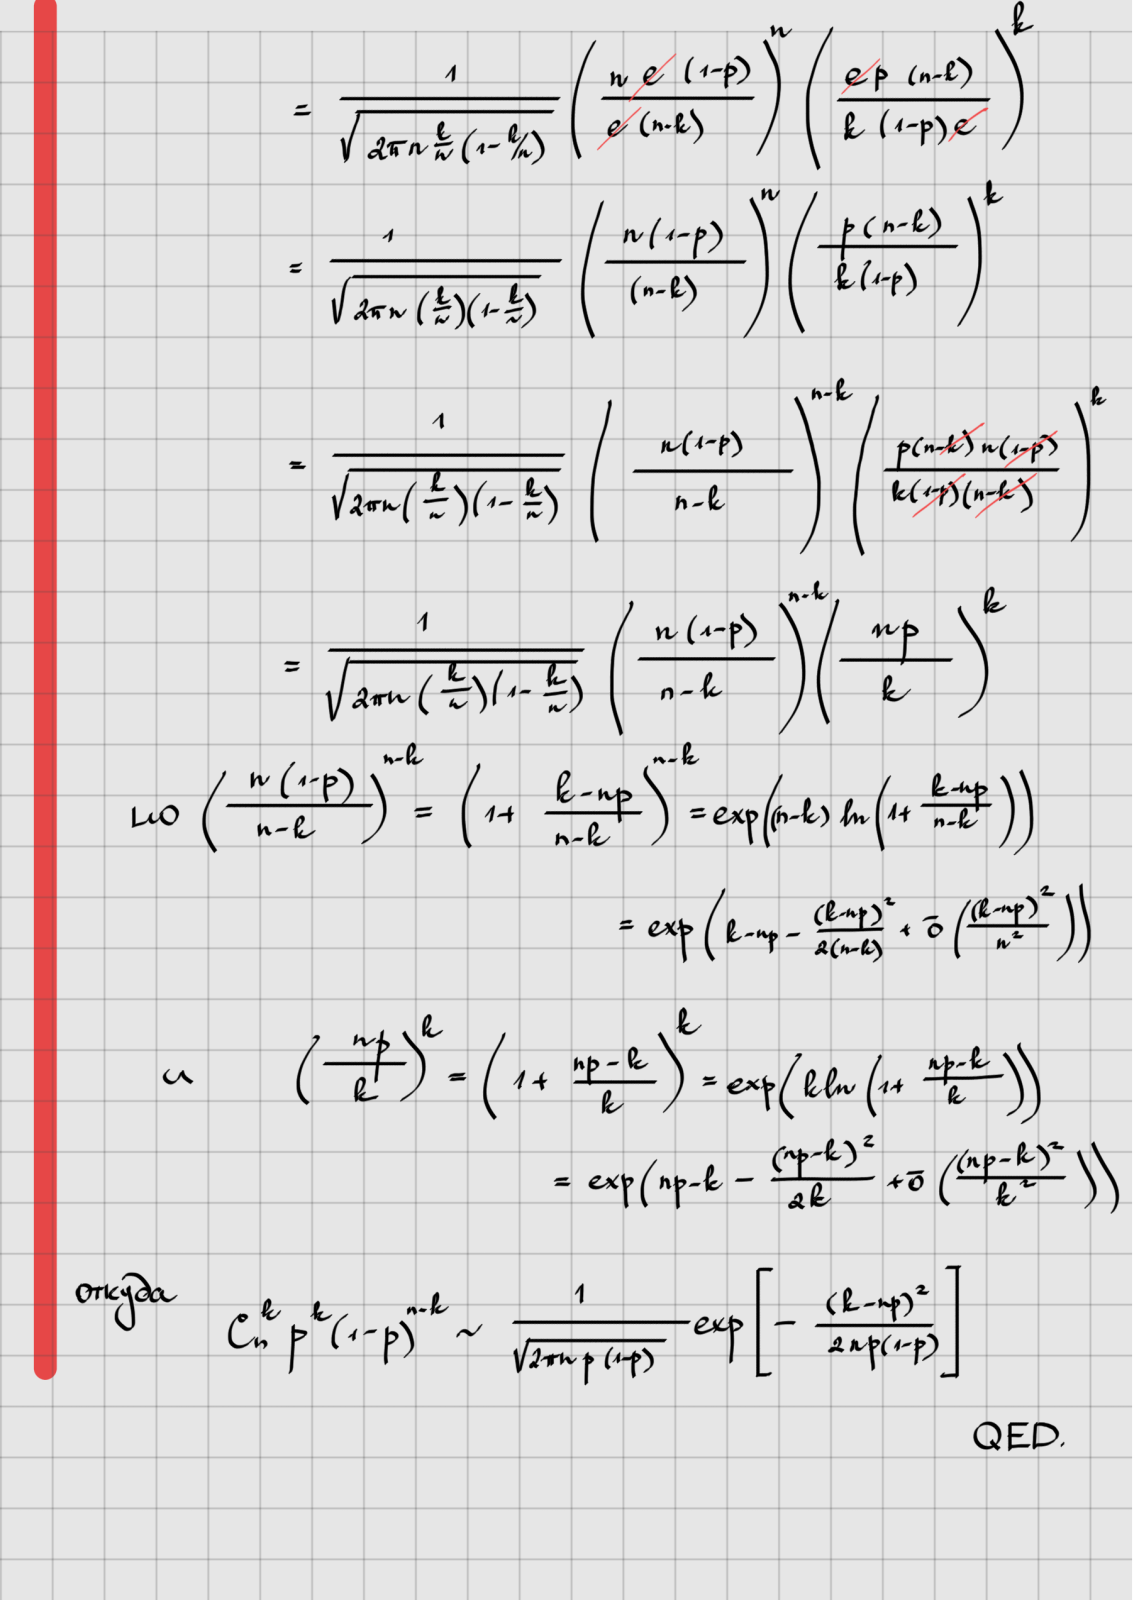 = 1/√(2πn k/n (1-k/n)) (n e (1-p) / e (n-k))^n (e p (n-k) / k (1-p) e)^k
= 1/√(2πn (k/n)(1-k/n)) (n(1-p) / (n-k))^n (p(n-k) / k(1-p))^k
= 1/√(2πn (k/n)(1-k/n)) (n(1-p) / n-k)^{n-k} (p(n-k) n(1-p) / k(1-p)(n-k))^k
= 1/√(2πn (k/n)(1-k/n)) (n(1-p) / n-k)^{n-k} (np / k)^k
но (n(1-p) / n-k)^{n-k} = (1+ k-np / n-k)^{n-k} = exp((n-k) ln(1+ k-np / n-k))
= exp(k-np - (k-np)² / 2(n-k) + ō((k-np)² / n²))
и (np / k)^k = (1+ np-k / k)^k = exp(k ln(1+ np-k / k))
= exp(np-k - (np-k)² / 2k + ō((np-k)² / k²))
откуда C_n^k p^k (1-p)^{n-k} ~ 1/√(2πn p (1-p)) exp[- (k-np)² / 2np(1-p)]
QED.